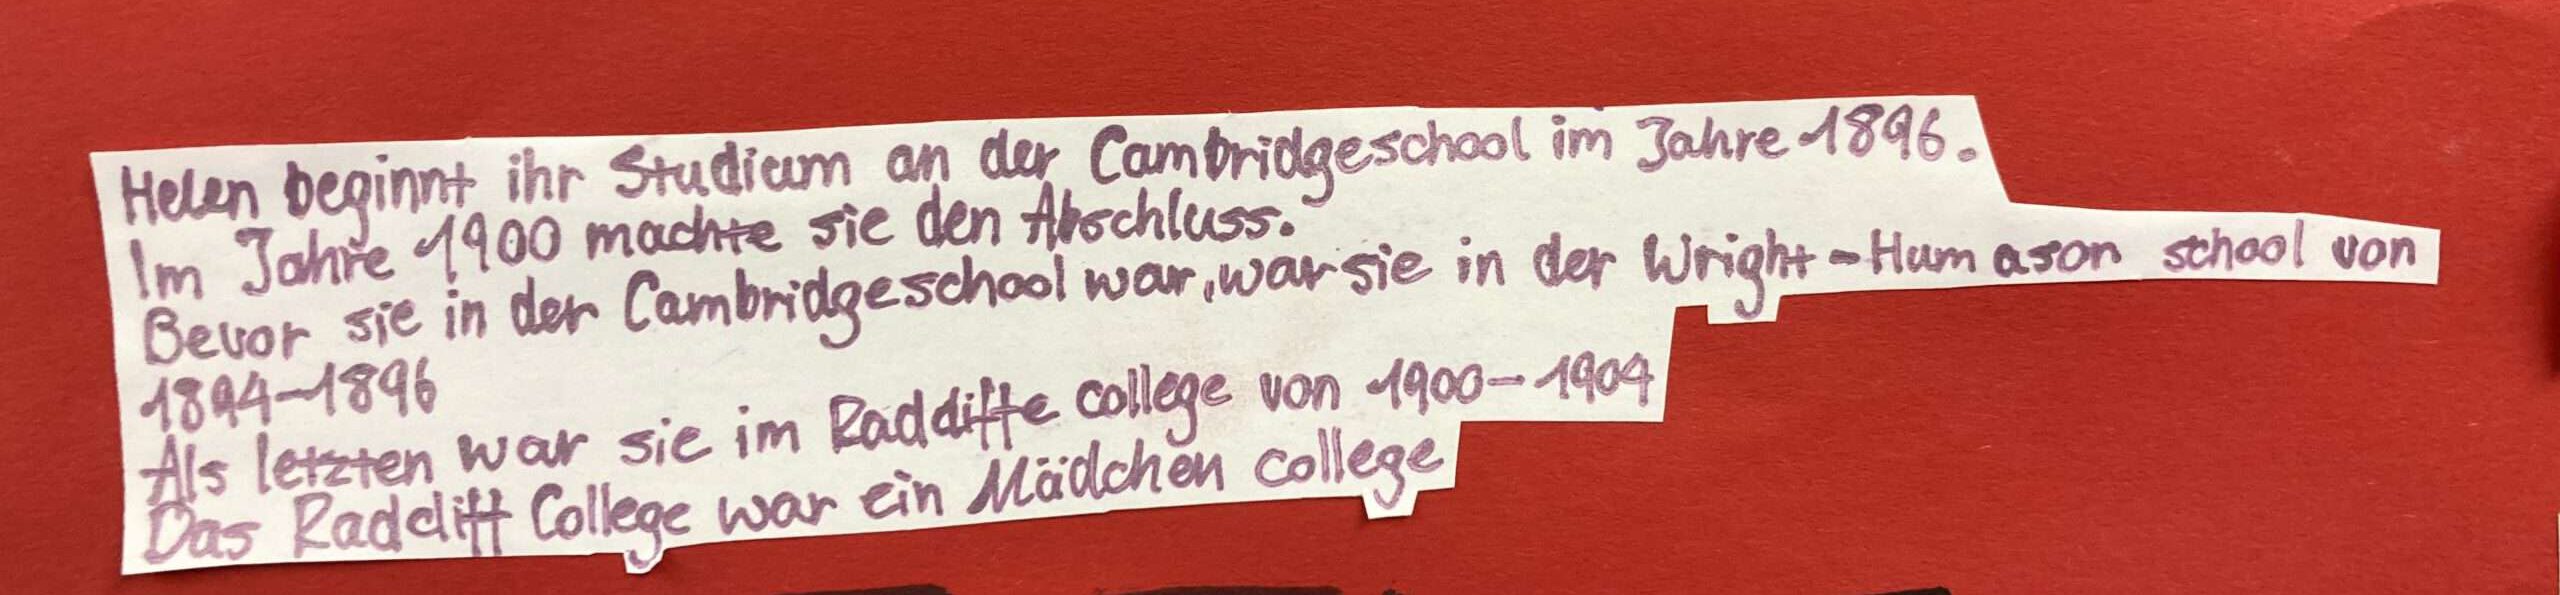 Helen beginnt ihr Studium an der Cambridgeschool im Jahre 1896.
Im Jahre 1900 machte sie den Abschluss.
Bevor sie in der Cambridgeschool war, war sie in der Wright-Humason school von
1894-1896
Als letzten war sie im Radcliffe college von 1900-1904
Das Radcliff College war ein Mädchen college